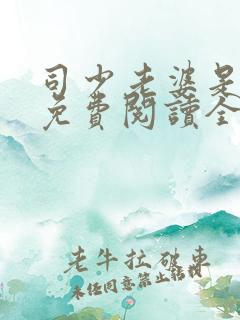 司少老婆是
免費閱讀全
老牛拉破車
未经同意禁止转载